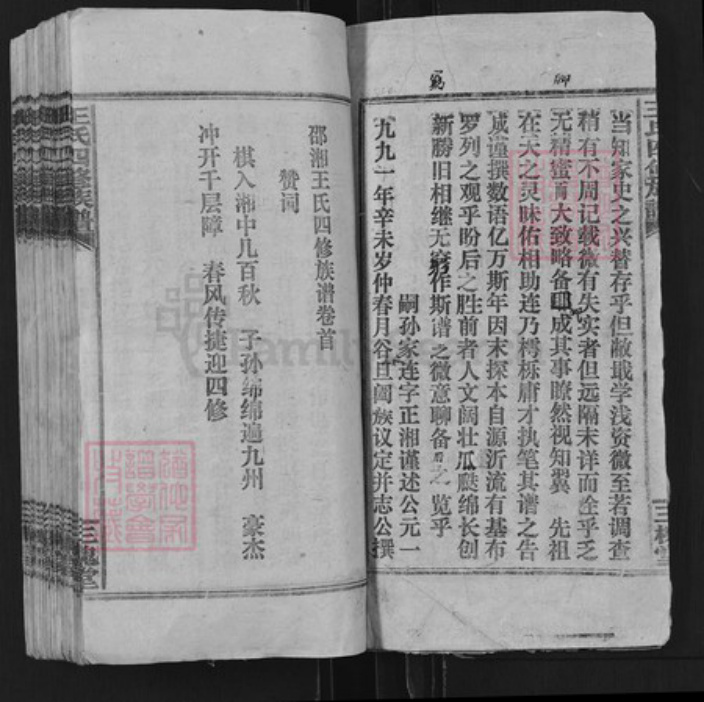 当知家史之兴替存乎但敝哉学浅资微至若调查
稍有不周记载微有失实者但远隔未详而全乎乏
无精蜜而大致略备耶成其事瞭然视知翼 先祖
在天之灵昧佑相助连乃樗栎庸才执笔其谱之告
成谨撰数语亿万斯年因末探本自源沂流有基布
罗列之观乎盼后之胜前者人文阔壮瓜瓞绵长创
新勝旧相继无穷作斯谱之微意聊备后之览乎
嗣孙家连字正湘谨述公元一
九九一年辛未岁仲春月谷旦阖族议定并志公撰
邵湘王氏四修族谱卷首
赞词
棋入湘中几百秋 子孙绵绵遍九州 豪杰
冲开千层障 春风传捷迎四修
王氏四修族谱
三槐堂